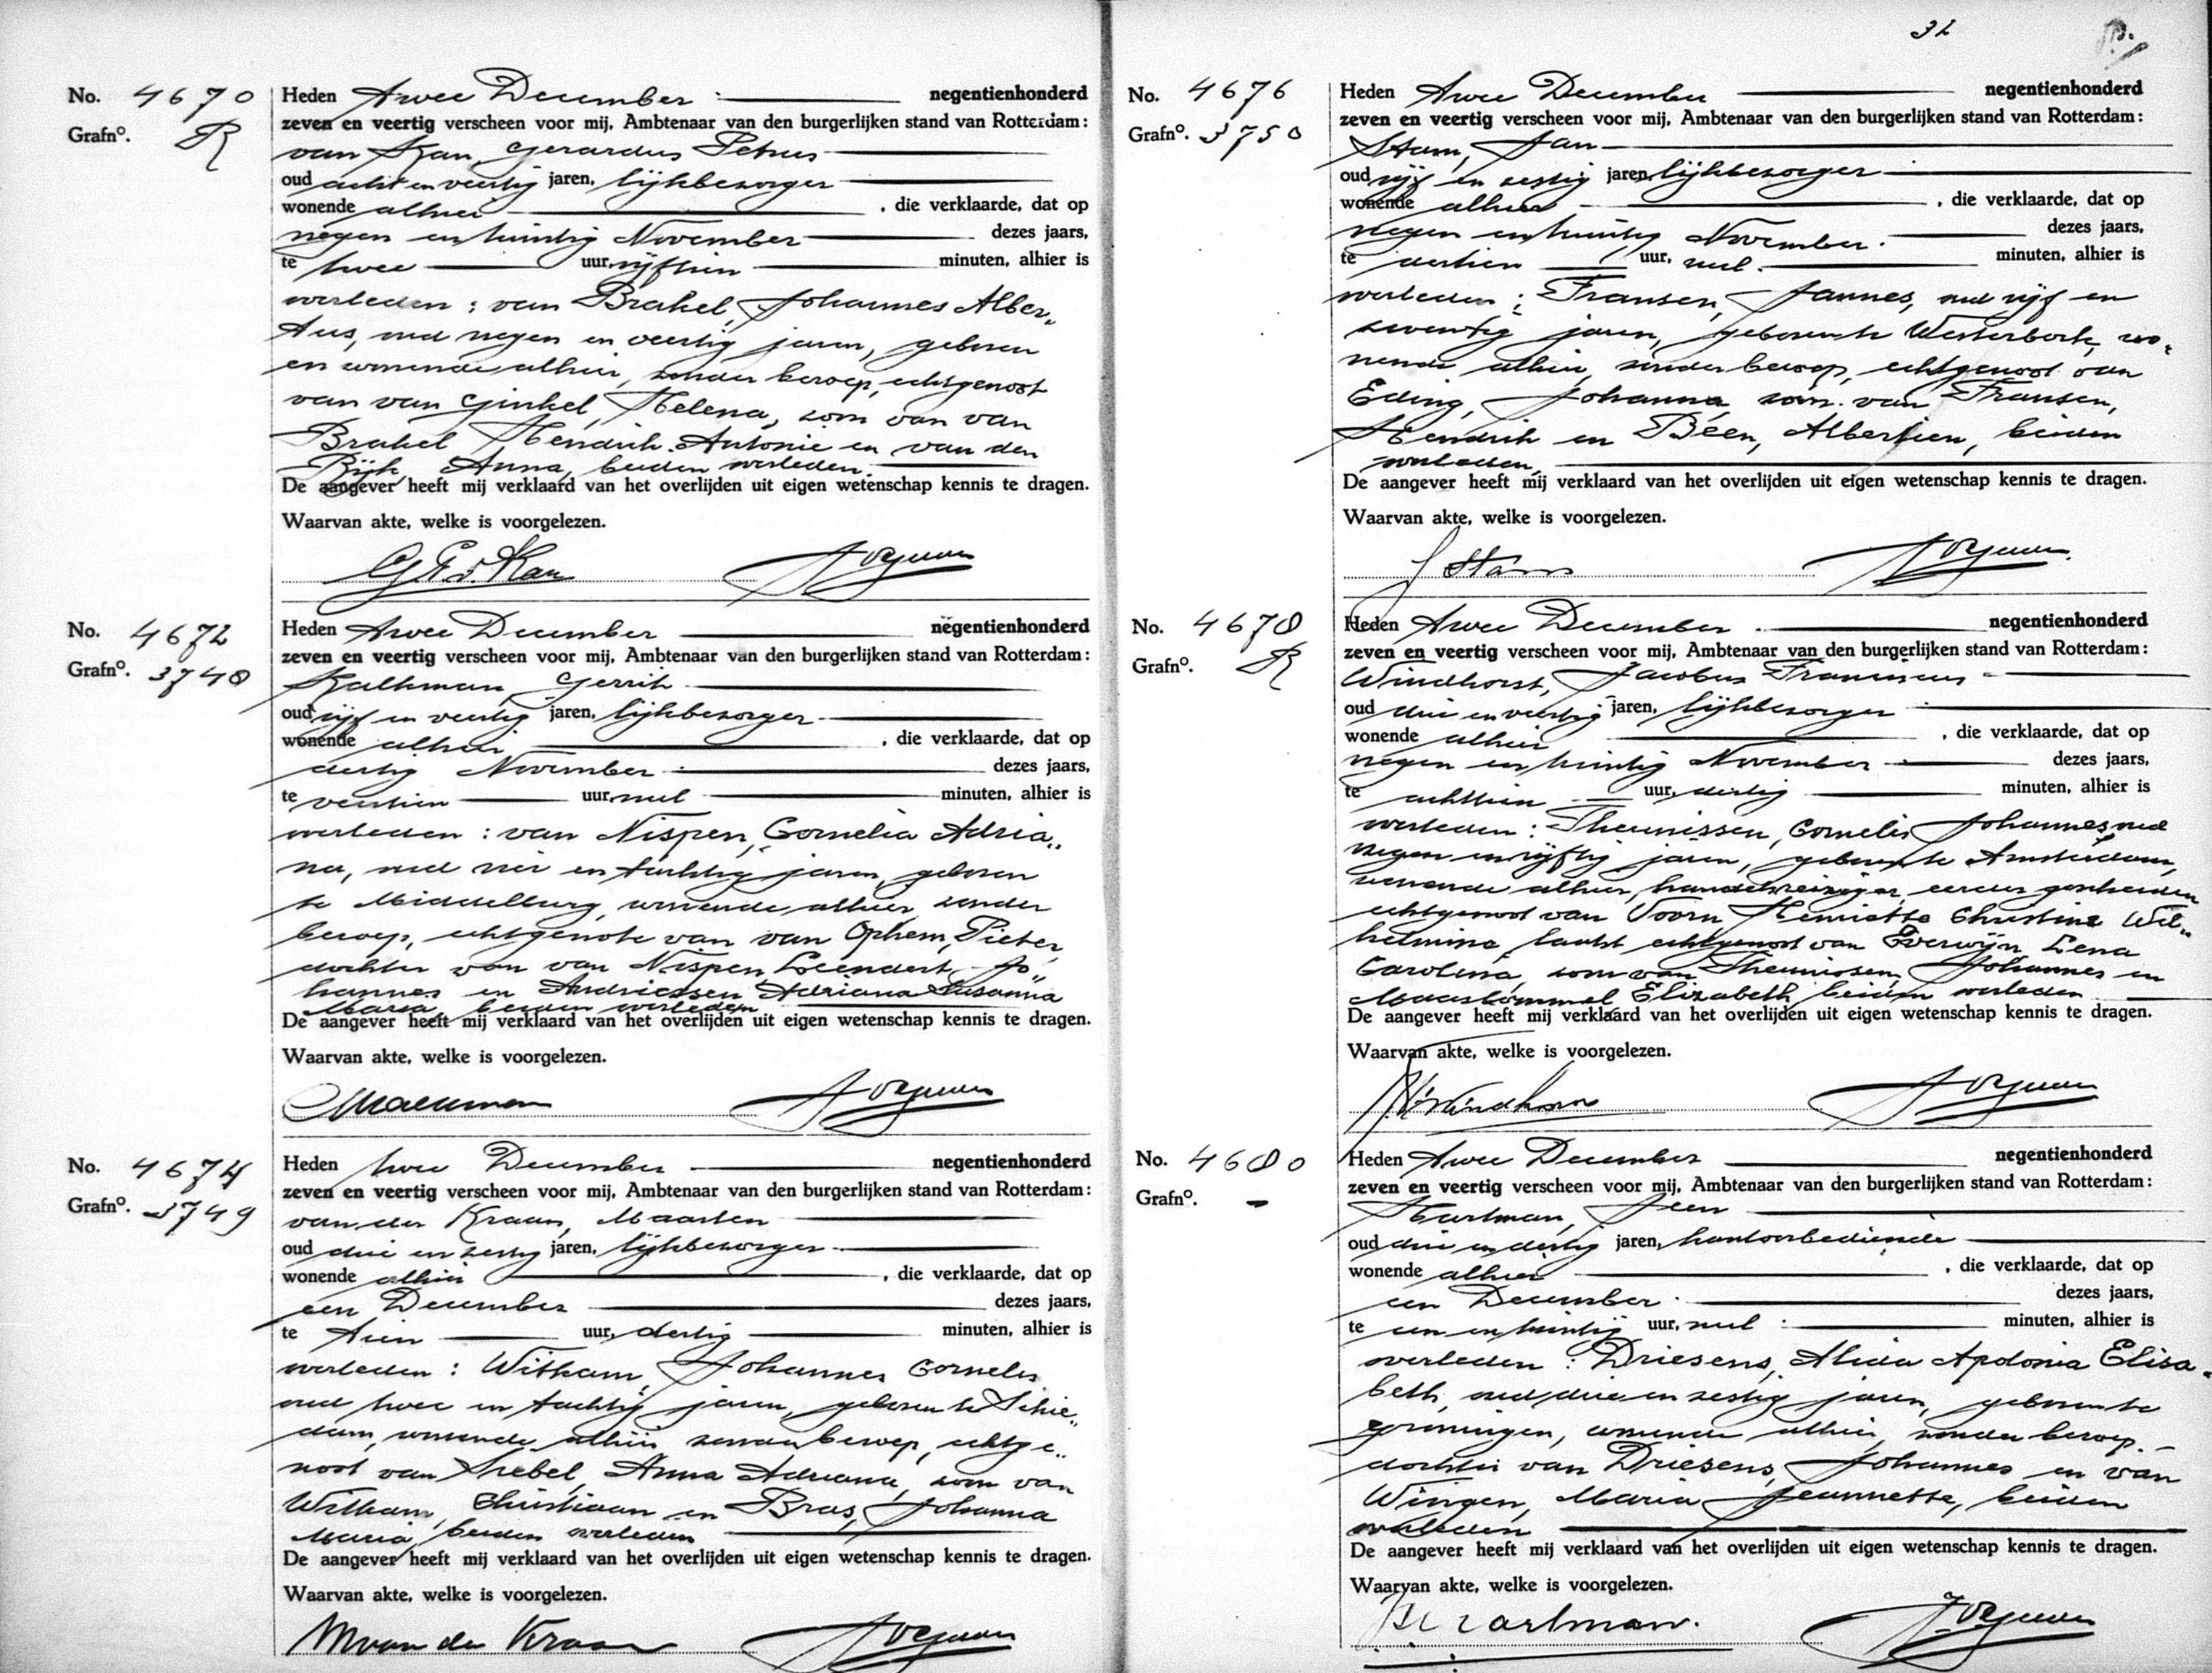 No. 4670
Grafno. R
Heden twee December negentienhonderd
zeven en veertig verscheen voor mij, Ambtenaar van den burgerlijken stand van Rotterdam:
van Kan, Gerardus Petrus
oud acht en veertig jaren, lijkbezorger
wonende alhier, die verklaarde, dat op
negen en twintig November dezes jaars,
te twee uur, vijftien minuten, alhier is
overleden: van Brakel, Johannes Alber„
tus, oud negen en veertig jaren, geboren
en wonende alhier, zonder beroep, echtgenoot
van van Ginkel, Helena, zoon van van
Brakel Hendrik Antonie en van den
Rijk, Anna, beiden overleden.
De aangever heeft mij verklaard van het overlijden uit eigen wetenschap kennis te dragen.
Waarvan akte, welke is voorgelezen.
G P v. Kan
No. 4672
Grafno. 3748
Heden twee December negentienhonderd
zeven en veertig verscheen voor mij, Ambtenaar van den burgerlijken stand van Rotterdam:
Kalkman, Gerrit
oud vijf en veertig jaren, lijkbezorger
wonende alhier, die verklaarde, dat op
dertig November dezes jaars,
te veertien uur, nul minuten, alhier is
overleden: van Nispen, Cornelia Adria„
na, oud vier en tachtig jaren, geboren
te Middelburg, wonende alhier, zonder
beroep, echtgenote van van Ophem, Pieter,
dochter van van Nispen Leendert Jo„
hannes en Andriessen Adriana Susanna
Maria, beiden overleden
De aangever heeft mij verklaard van het overlijden uit eigen wetenschap kennis te dragen.
Waarvan akte, welke is voorgelezen.
No. 4674
Grafno. 3749
Heden twee December negentienhonderd
zeven en veertig verscheen voor mij, Ambtenaar van den burgerlijken stand van Rotterdam:
van der Kraan, Maarten
oud drie en zestig jaren, lijkbezorger
wonende alhier, die verklaarde, dat op
een December dezes jaars,
te tien uur, dertig minuten, alhier is
overleden: Witkam, Johannes Cornelis
oud twee en tachtig jaren, geboren te Schie„
dam, wonende alhier zonder beroep, echtge„
noot van Krebel, Anna Adriana, zoon van
Witkam, Christiaan en Bras, Johanna
Maria, beiden overleden
De aangever heeft mij verklaard van het overlijden uit eigen wetenschap kennis te dragen.
Waarvan akte, welke is voorgelezen.
M van der Kraan
32
No. 4676
Grafno. 3750
Heden twee December negentienhonderd
zeven en veertig verscheen voor mij, Ambtenaar van den burgerlijken stand van Rotterdam:
Stam, Jan
oud vijf en zestig jaren, lijkbezorger
wonende alhier, die verklaarde, dat op
negen en twintig November dezes jaars,
te dertien uur, nul minuten, alhier is
overleden: Fransen, Jannes, oud vijf en
zeventig jaren, geboren te Westerbork, wo„
nende alhier, zonder beroep, echtgenoot van
Eding, Johanna zoon van Fransen,
Hendrik en Been, Albertien, beiden
overleden,
De aangever heeft mij verklaard van het overlijden uit eigen wetenschap kennis te dragen.
Waarvan akte, welke is voorgelezen.
J Stam
No. 4678
Grafno. R
Heden twee December negentienhonderd
zeven en veertig verscheen voor mij, Ambtenaar van den burgerlijken stand van Rotterdam:
Windhorst, Jacobus Franciscus
oud drie en veertig jaren, lijkbezorger
wonende alhier, die verklaarde, dat op
negen en twintig November dezes jaars,
te achttien uur, dertig minuten, alhier is
overleden: Theunissen, Cornelis Johannes, oud
negen en vijftig jaren, geboren te Amsterdam,
wonende alhier, handelsreiziger, eerder gescheiden
echtgenoot van Voorn Henriette Christina Wil„
helmina, laatst echtgenoot van Everwijn Lena
Carolina, zoon van Theunissen, Johannes en
Maasbommel Elizabeth, beiden overleden
De aangever heeft mij verklaard van het overlijden uit eigen wetenschap kennis te dragen.
Waarvan akte, welke is voorgelezen.
No. 4680
Grafno. -
Heden twee December negentienhonderd
zeven en veertig verscheen voor mij, Ambtenaar van den burgerlijken stand van Rotterdam:
Hartman, Jeen
oud drie en dertig jaren, kantoorbediende
wonende alhier, die verklaarde, dat op
een December dezes jaars,
te een en twintig uur, nul minuten, alhier is
overleden: Driesens, Alida Apolonia Elisa„
beth, oud drie en zestig jaren, geboren te
Groningen, wonende alhier, zonder beroep.
dochter van Driesens, Johannes en van
Wingen, Maria Jeannette, beiden
overleden
De aangever heeft mij verklaard van het overlijden uit eigen wetenschap kennis te dragen.
Waarvan akte, welke is voorgelezen.
Hartman.